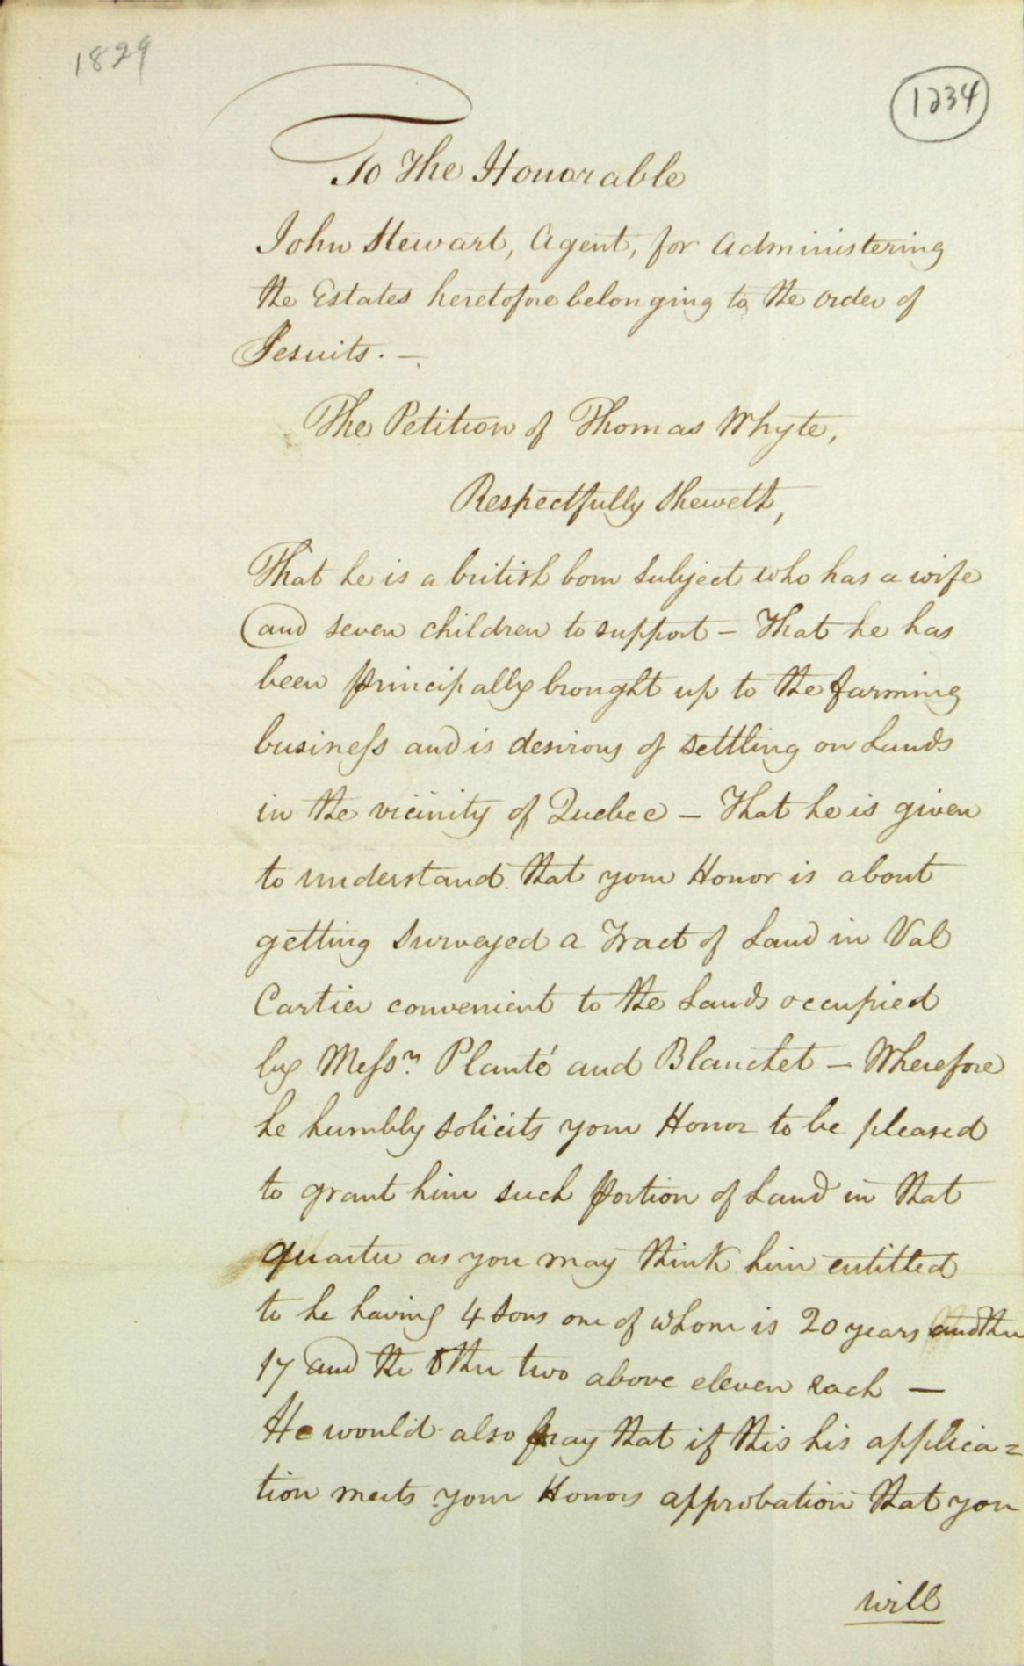 1829
1234
To The Honorable
John Stewart, Agent, for Administering
the Estates heretofore belonging to the order of
Jesuits. —
The Petition of Thomas Whyte,
Respectfully Sheweth,
That he is a british born Subject who has a wife
and seven children to support — That he has
been principally brought up to the farming
business and is desirous of settling on Lands
in the vicinity of Quebec — That he is given
to understand that your Honor is about
getting Surveyed a Tract of Land in Val
Cartier convenient to the Lands occupied
by Messrs. Planté and Blanchet — Wherefore
he humbly solicits your Honor to be pleased
to grant him such portion of Land in that
quarter as you may think him entitled
to he having 4 sons one of whom is 20 years
17 and the other two above eleven each —
He would also pray that if this his applica=
tion meets your Honors approbation that you
will